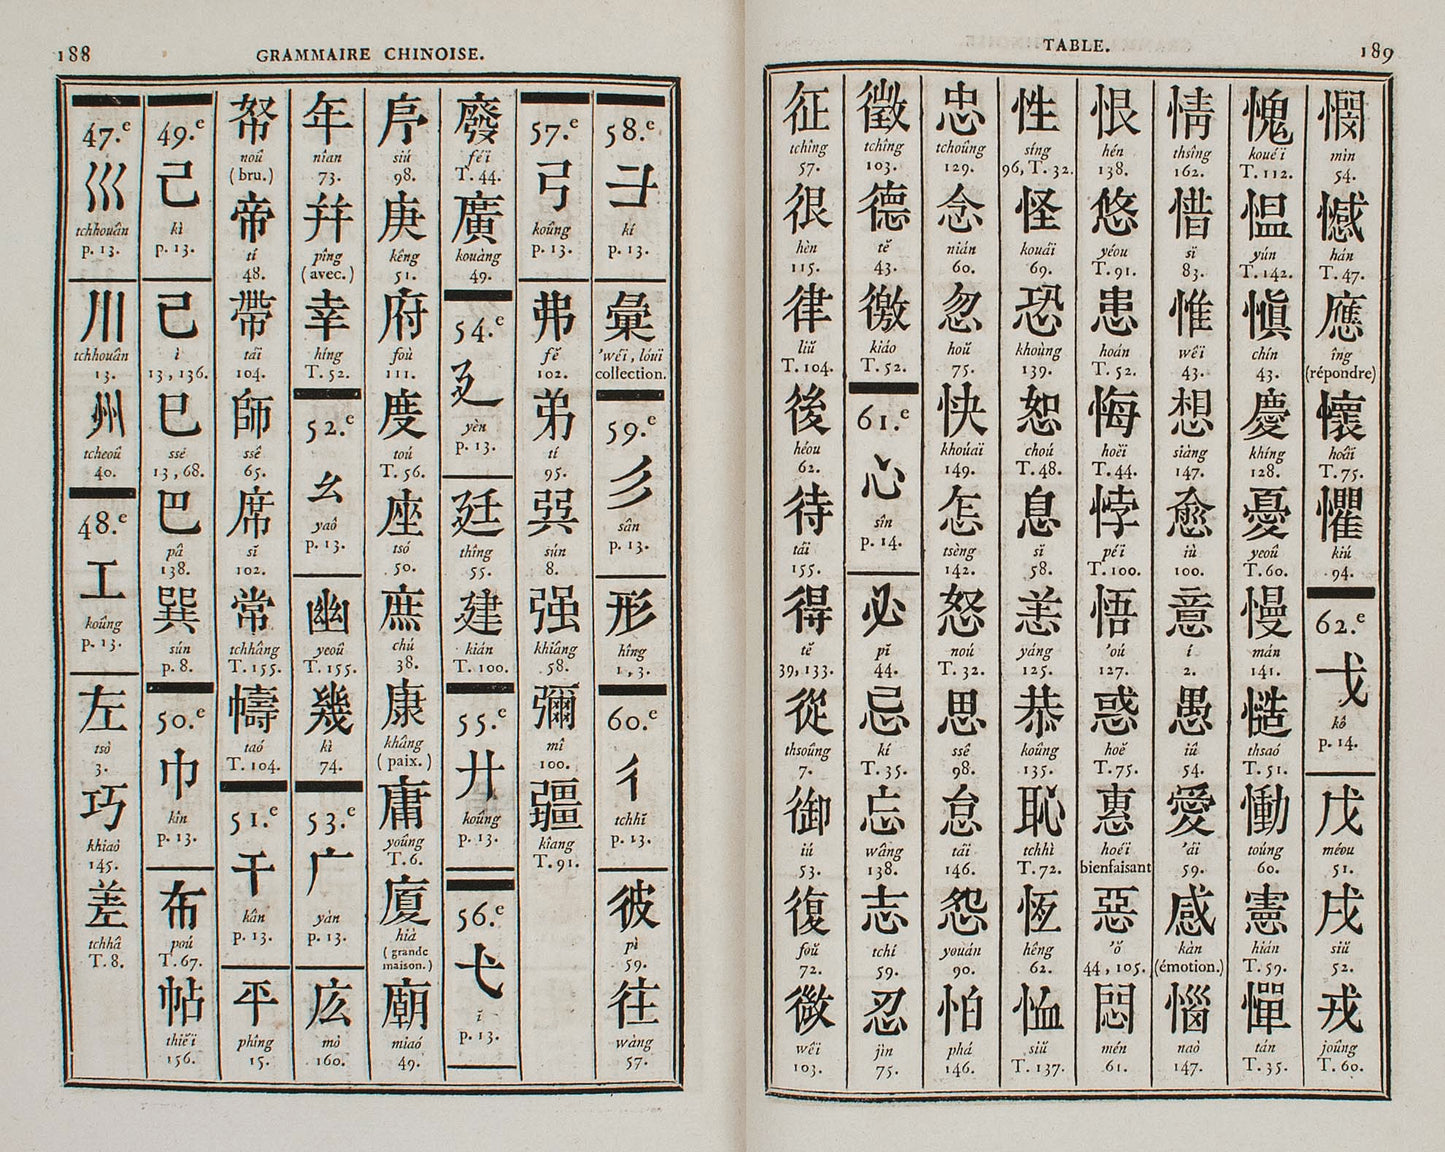 188
GRAMMAIRE CHINOISE.
47.e
巛
tchhouân
p. 13.
川
tchhouân
13.
州
tcheoû
40.
48.e
工
koûng
p. 13.
左
tsò
3.
巧
khiaò
145.
差
tchhâ
T. 8.
49.e
己
kì
p. 13.
已
ì
13, 136.
巳
ssé
13, 68.
巴
pâ
138.
巽
sún
p. 8.
50.e
巾
kîn
p. 13.
布
poú
T. 67.
帖
thiĕï
156.
帑
noû
(bru.)
帝
tí
48.
帶
táï
104.
師
ssê
65.
席
sĭ
102.
常
tchhâng
T. 155.
幬
taó
T. 104.
51.e
干
kân
p. 13.
平
phîng
15.
年
nîan
73.
并
pîng
(avec.)
幸
híng
T. 52.
52.e
幺
yaô
p. 13.
幽
yeoû
T. 155.
幾
kì
74.
53.e
广
yàn
p. 13.
広
mò
160.
序
siú
98.
庚
kêng
51.
府
foù
111.
度
toú
T. 56.
座
tsó
50.
庶
chú
38.
康
khâng
(paix.)
庸
yoûng
T. 6.
廈
hià
(grande
maison.)
廟
miaó
49.
廢
féï
T. 44.
廣
kouàng
49.
54.e
廴
yèn
p. 13.
廷
thîng
55.
建
kián
T. 100.
55.e
廾
koûng
p. 13.
56.e
弋
ĭ
p. 13.
57.e
弓
koûng
p. 13.
弗
fĕ
102.
弟
tí
95.
巺
sún
8.
强
khiâng
58.
彌
mî
100.
疆
kîang
T. 91.
58.e
彐
kí
p. 13.
彙
'wéï, lóuï
collection.
59.e
彡
sân
p. 13.
形
hîng
1, 3.
60.e
彳
tchhĭ
p. 13.
彼
pì
59.
往
wàng
57.
TABLE.
189
征
tchîng
57.
很
hèn
115.
律
liŭ
T. 104.
後
héou
62.
待
táï
155.
得
tĕ
39, 133.
從
thsoûng
7.
御
iú
53.
復
foŭ
72.
微
wêï
103.
徵
tchîng
103.
德
tĕ
43.
徼
kiáo
T. 52.
61.e
心
sîn
p. 14.
必
pĭ
44.
忌
kí
T. 35.
忘
wâng
138.
志
tchí
59.
忍
jìn
75.
忠
tchoûng
129.
念
nián
60.
忽
hoŭ
75.
快
khoúaï
149.
怎
tsèng
142.
怒
noú
T. 32.
思
ssê
98.
怠
táï
146.
怨
youán
90.
怕
phá
146.
性
síng
96, T. 32.
怪
kouáï
69.
恐
khoùng
139.
恕
choú
T. 48.
息
sĭ
58.
恙
yáng
125.
恭
koûng
135.
恥
tchhì
T. 72.
恆
hêng
62.
恤
siŭ
T. 137.
恨
hén
138.
悠
yéou
T. 91.
患
hoán
T. 52.
悔
hoëï
T. 44.
悖
péï
T. 100.
悟
'oú
127.
惑
hoĕ
T. 75.
惠
hoéï
bienfaisant
惡
'ŏ
44, 105.
悶
mén
61.
情
thsîng
162.
惜
sĭ
83.
惟
wêï
43.
想
siàng
147.
愈
iù
100.
意
í
2.
愚
iû
54.
愛
'áï
59.
感
kàn
(émotion.)
惱
naò
147.
愧
koueï
T. 112.
愠
yún
T. 142.
愼
chín
43.
慶
khíng
128.
憂
yeoû
T. 60.
慢
mán
141.
慥
thsaó
T. 51.
慟
toúng
60.
憲
hián
T. 59.
憚
tán
T. 35.
憫
mìn
54.
憾
hán
T. 47.
應
îng
(répondre)
懷
hoâï
T. 75.
懼
kiú
94.
62.e
戈
kô
p. 14.
戊
méou
51.
戌
siŭ
52.
戎
joûng
T. 60.